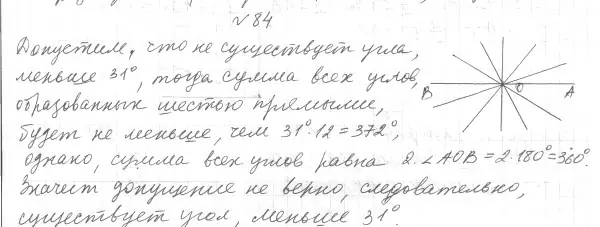 №84
Допустим, что не существует угла,
меньше 31°, тогда сумма всех углов,
образованных шестью прямыми,
B O A
будет не меньше, чем 31°·12=372°,
однако, сумма всех углов равна 2·∠AOB=2·180°=360°.
Значит допущение не верно, следовательно,
существует угол, меньше 31°.